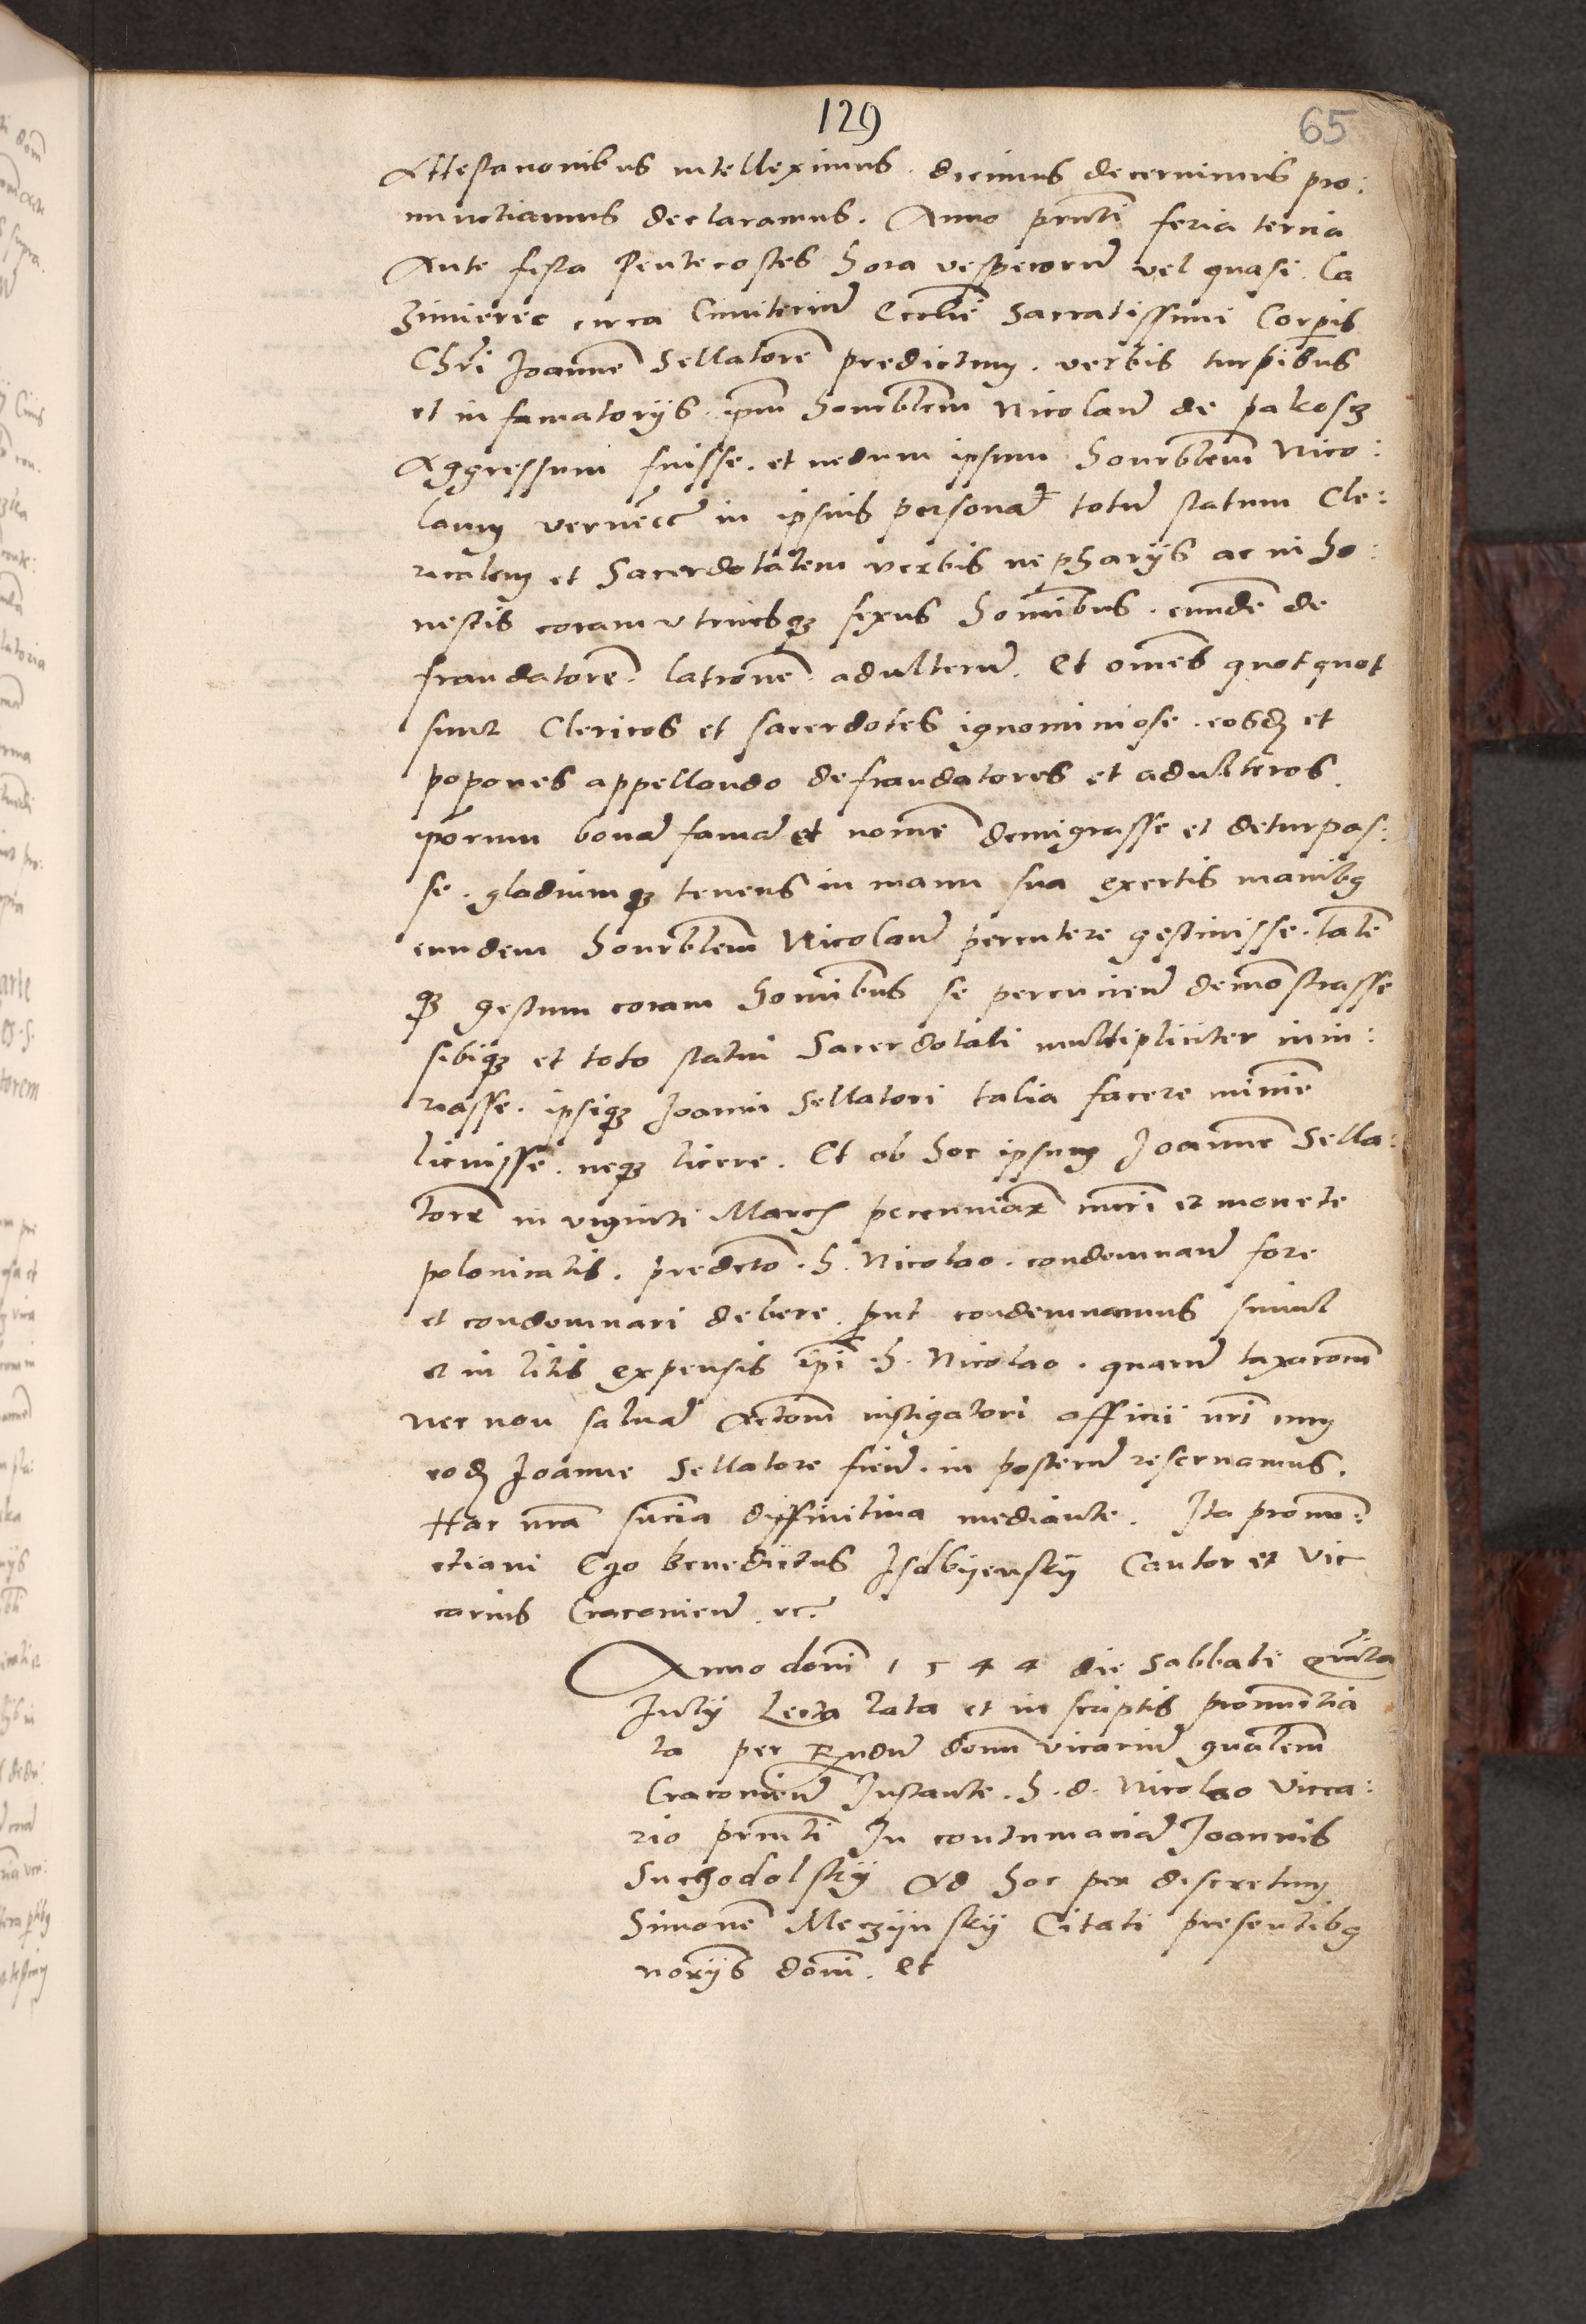 129
65
Attestationibus intelleximus. dicimus decernimus pro:
nunctiamus declaramus. Anno prnti feria tercia
Ante festa Pentecostes hora vesperorũ vel quasi. Ca
zimierie circa Cimiteriũ Ecclie Sacratissimi Corpis
Chri Joannẽ Sellatorẽ predictum. verbis turpibus
et in famatorijs. ipm honrblem Nicolaũ de pakosz
Aggressum fuisse. et nedum ipsum honrblem Nico:
laum verũecc in ipsius personã totũ statum Cle:
ricalem et Sacerdotalem verbis nephariis ac in ho:
nestis coram utriusqз sexus hominibus. eundẽ de
fraudatorẽ. latronẽ. adulterũ. Et omẽs quotquot
sunt Clericos et sacerdotes ignominiose. eosdem et
popones appellando defraudatores et adulteros.
iporum bonã famã et nomẽ denigrasse et deturpas:
se. gladiumqз tenens in manu sua exertis manibꝯ
eundem honrblem Nicolaũ percutere gestiuisse. talẽ
qз gestum coram hominibus se percucienđ demonstrasse
sibiqз et toto statui Sacerdotali multipliciter iniu:
riasse. ipsiqз Joanni Sellatori talia facere minime
licuisse. neqз licere. Et ob hoc ipsum Joannẽ Sella:
torẽ in viginti Marcis pecuniar̃ nũri et monete
polonicalis. predicto. h. Nicolao. condemnanđ fore
et condemnari debere. prut condemnamus simul
et in litis expensis ipi .h. Nicolao. quarũ taxaconem
nec non saluã Actonem instigatori officii nri cum
eodem Joanne Sellatore fienđ. in posterũ reseruamus.
Hac nra sncia diffinitiua mediante. Ita pronun:
ctiaui Ego Benedictus Isdbijenskij Cantor et Vic
carius Cracouieñ. etc.
Anno domi 1544 die Sabbati Quinta
Julij Lecta lata et in scriptis pronunctia
ta per Rndum domi vicariũ gnalem
Cracouieñ Instante. h. d. Nicolao Vicca:
rio prnti In contumaciã Joannis
Suchodolskij Ad hoc per discretum
Simonẽ Meczijnskij Citati presentibꝯ
norijs domi. et